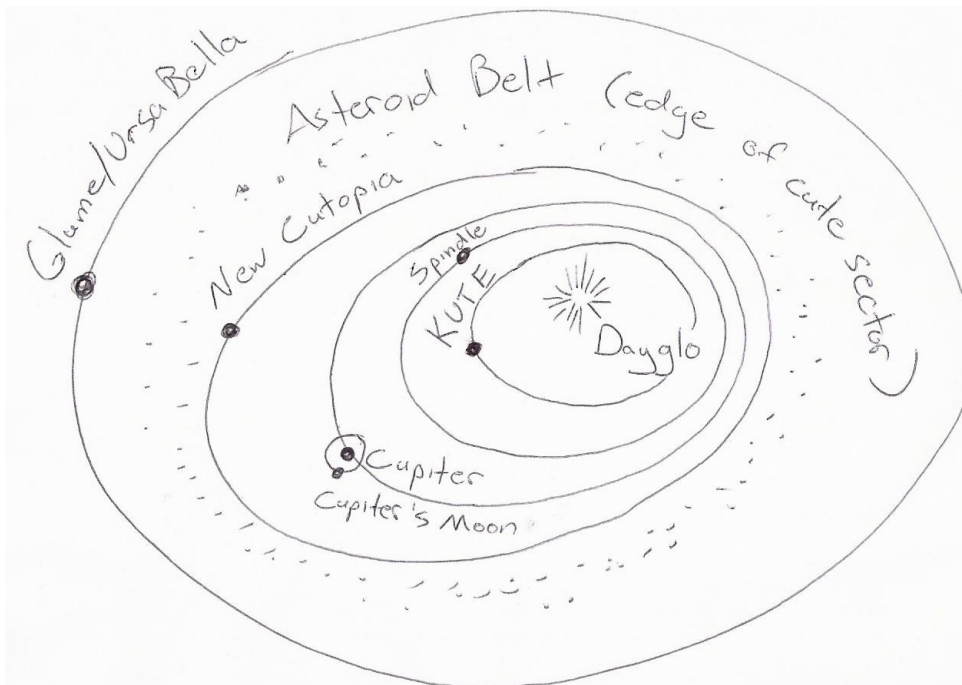 Glume/Ursa Bella
Asteroid Belt (edge of cute sector)
New Cutopia
Spindle
KUTE
Dayglo
Cupiter
Cupiter's Moon